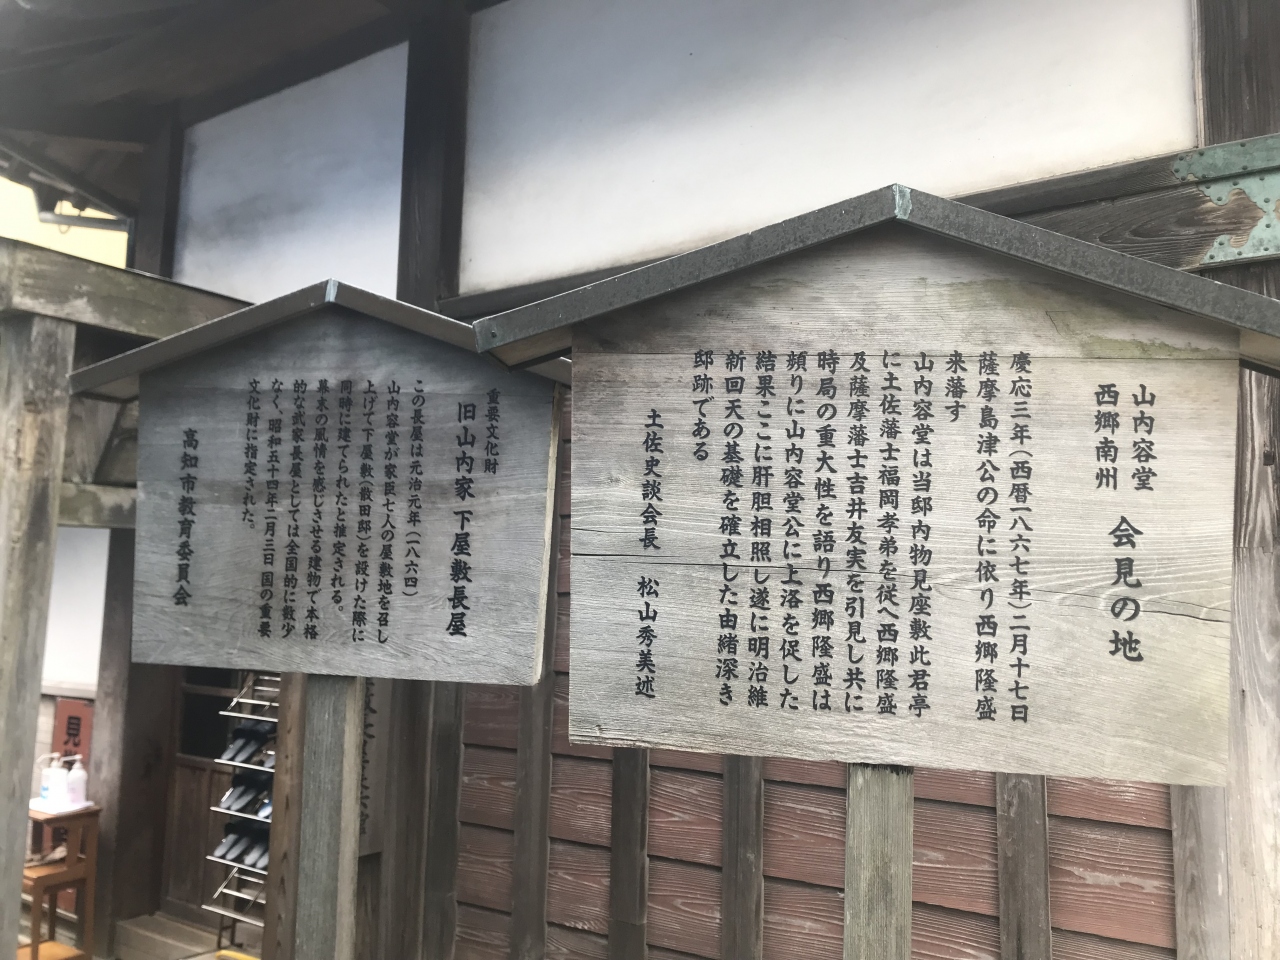 山内容堂
西郷南州
会見の地
慶応三年（西暦一八六七年）二月十七日
薩摩島津公の命に依り西郷隆盛
来藩す
山内容堂は当邸内物見座敷此君亭
に土佐藩士福岡孝弟を従へ西郷隆盛
及薩摩藩士吉井友実を引見し共に
時局の重大性を語り西郷隆盛は
頻りに山内容堂公に上洛を促した
結果ここに肝胆相照し遂に明治維
新回天の基礎を確立した由緒深き
邸跡である
土佐史談会長　松山秀美述
重要文化財
旧山内家下屋敷長屋
この長屋は元治元年（一八六四）
山内容堂が家臣七人の屋敷地を召し
上げて下屋敷（散田邸）を設けた際に
同時に建てられたと推定される。
幕末の風情を感じさせる建物で本格
的な武家長屋としては全国的に数少
なく、昭和五十四年二月三日国の重要
文化財に指定された。
高知市教育委員会
見